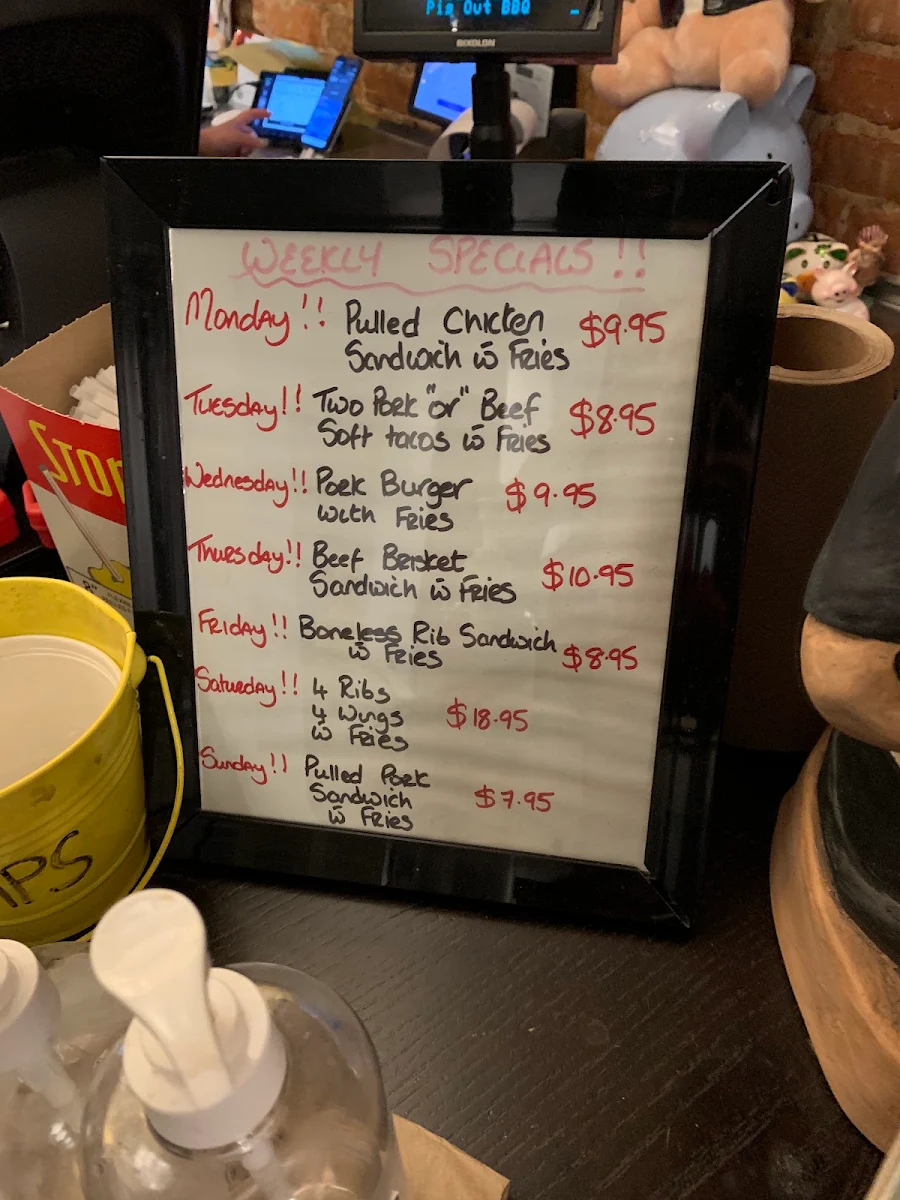 Pig Out BBQ
BIXOLON
WEEKLY SPECIALS!!
Monday!! Pulled Chicken $9.95
Sandwich w̄ Fries
Tuesday!! Two Pork "or" Beef $8.95
Soft tacos w̄ Fries
Wednesday!! Pork Burger $9.95
with Fries
Thursday!! Beef Brisket $10.95
Sandwich w̄ Fries
Friday!! Boneless Rib Sandwich $8.95
w̄ Fries
Saturday!! 4 Ribs
4 Wings $18.95
w̄ Fries
Sunday!! Pulled Pork $7.95
Sandwich
w̄ Fries